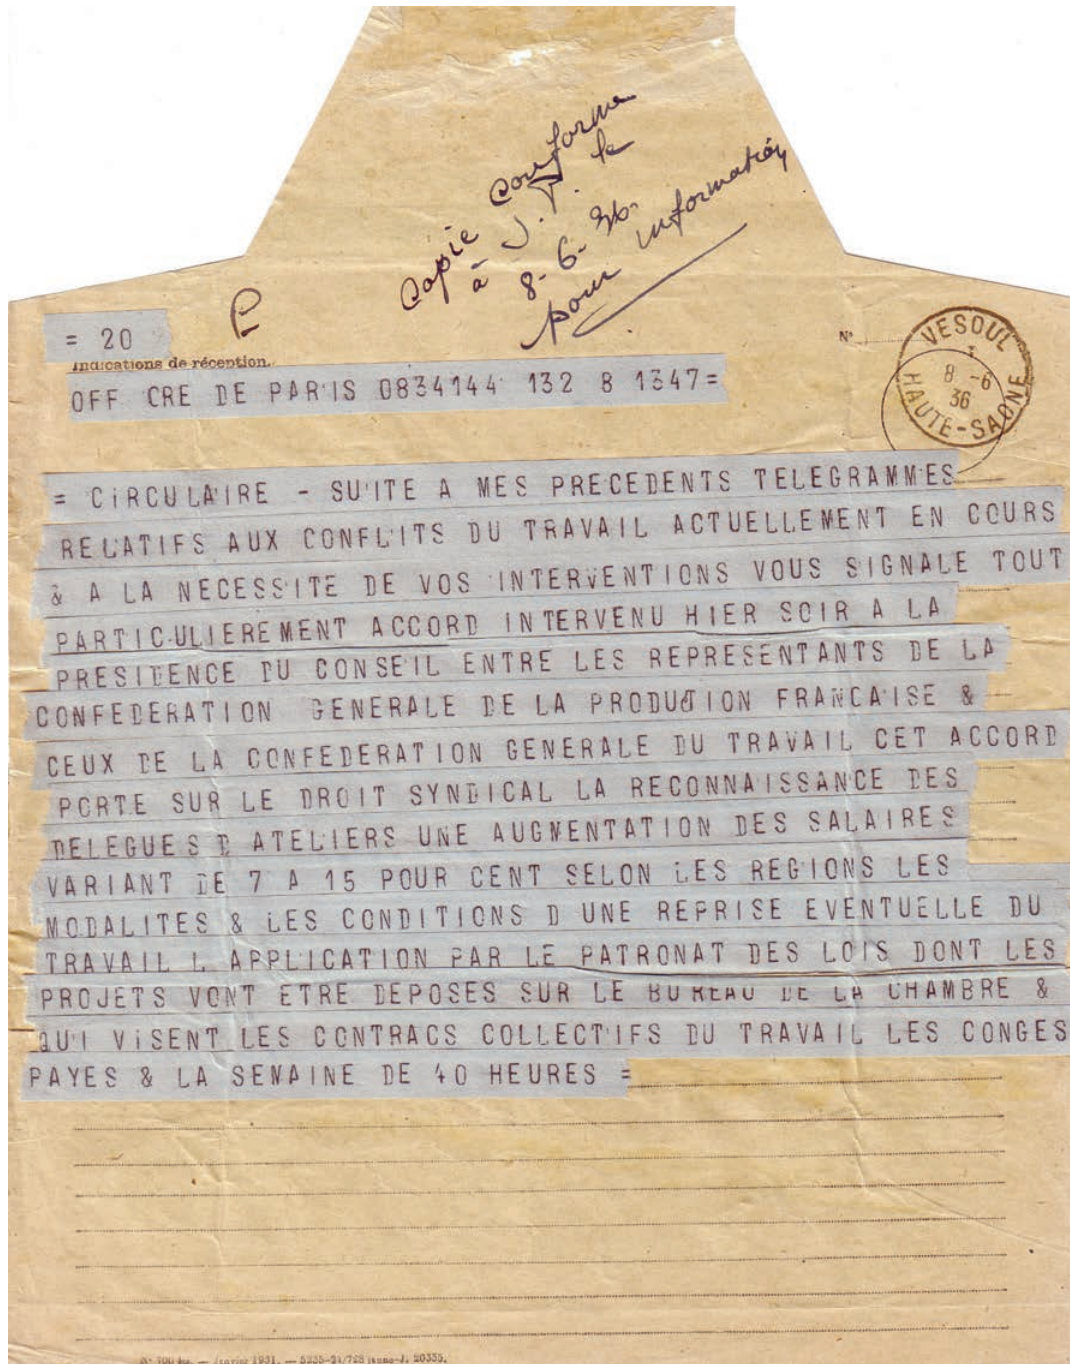 Copie conforme
à J. P. le
8-6-36.
pour information
= 20
Indications de réception.
N°
VESOUL
8 -6
36
HAUTE-SAONE
OFF CRE DE PARIS 0834144 132 8 1347=
= CIRCULAIRE - SUITE A MES PRECEDENTS TELEGRAMMES
RELATIFS AUX CONFLITS DU TRAVAIL ACTUELLEMENT EN COURS
& A LA NECESSITE DE VOS INTERVENTIONS VOUS SIGNALE TOUT
PARTICULIEREMENT ACCORD INTERVENU HIER SOIR A LA
PRESIDENCE DU CONSEIL ENTRE LES REPRESENTANTS DE LA
CONFEDERATION GENERALE DE LA PRODUCTION FRANCAISE &
CEUX DE LA CONFEDERATION GENERALE DU TRAVAIL CET ACCORD
PORTE SUR LE DROIT SYNDICAL LA RECONNAISSANCE DES
DELEGUES D ATELIERS UNE AUGMENTATION DES SALAIRES
VARIANT DE 7 A 15 POUR CENT SELON LES REGIONS LES
MODALITES & LES CONDITIONS D UNE REPRISE EVENTUELLE DU
TRAVAIL L APPLICATION PAR LE PATRONAT DES LOIS DONT LES
PROJETS VONT ETRE DEPOSES SUR LE BUREAU DE LA CHAMBRE &
QUI VISENT LES CONTRACS COLLECTIFS DU TRAVAIL LES CONGES
PAYES & LA SEMAINE DE 40 HEURES =
1931. — 5235-21/728 20335.